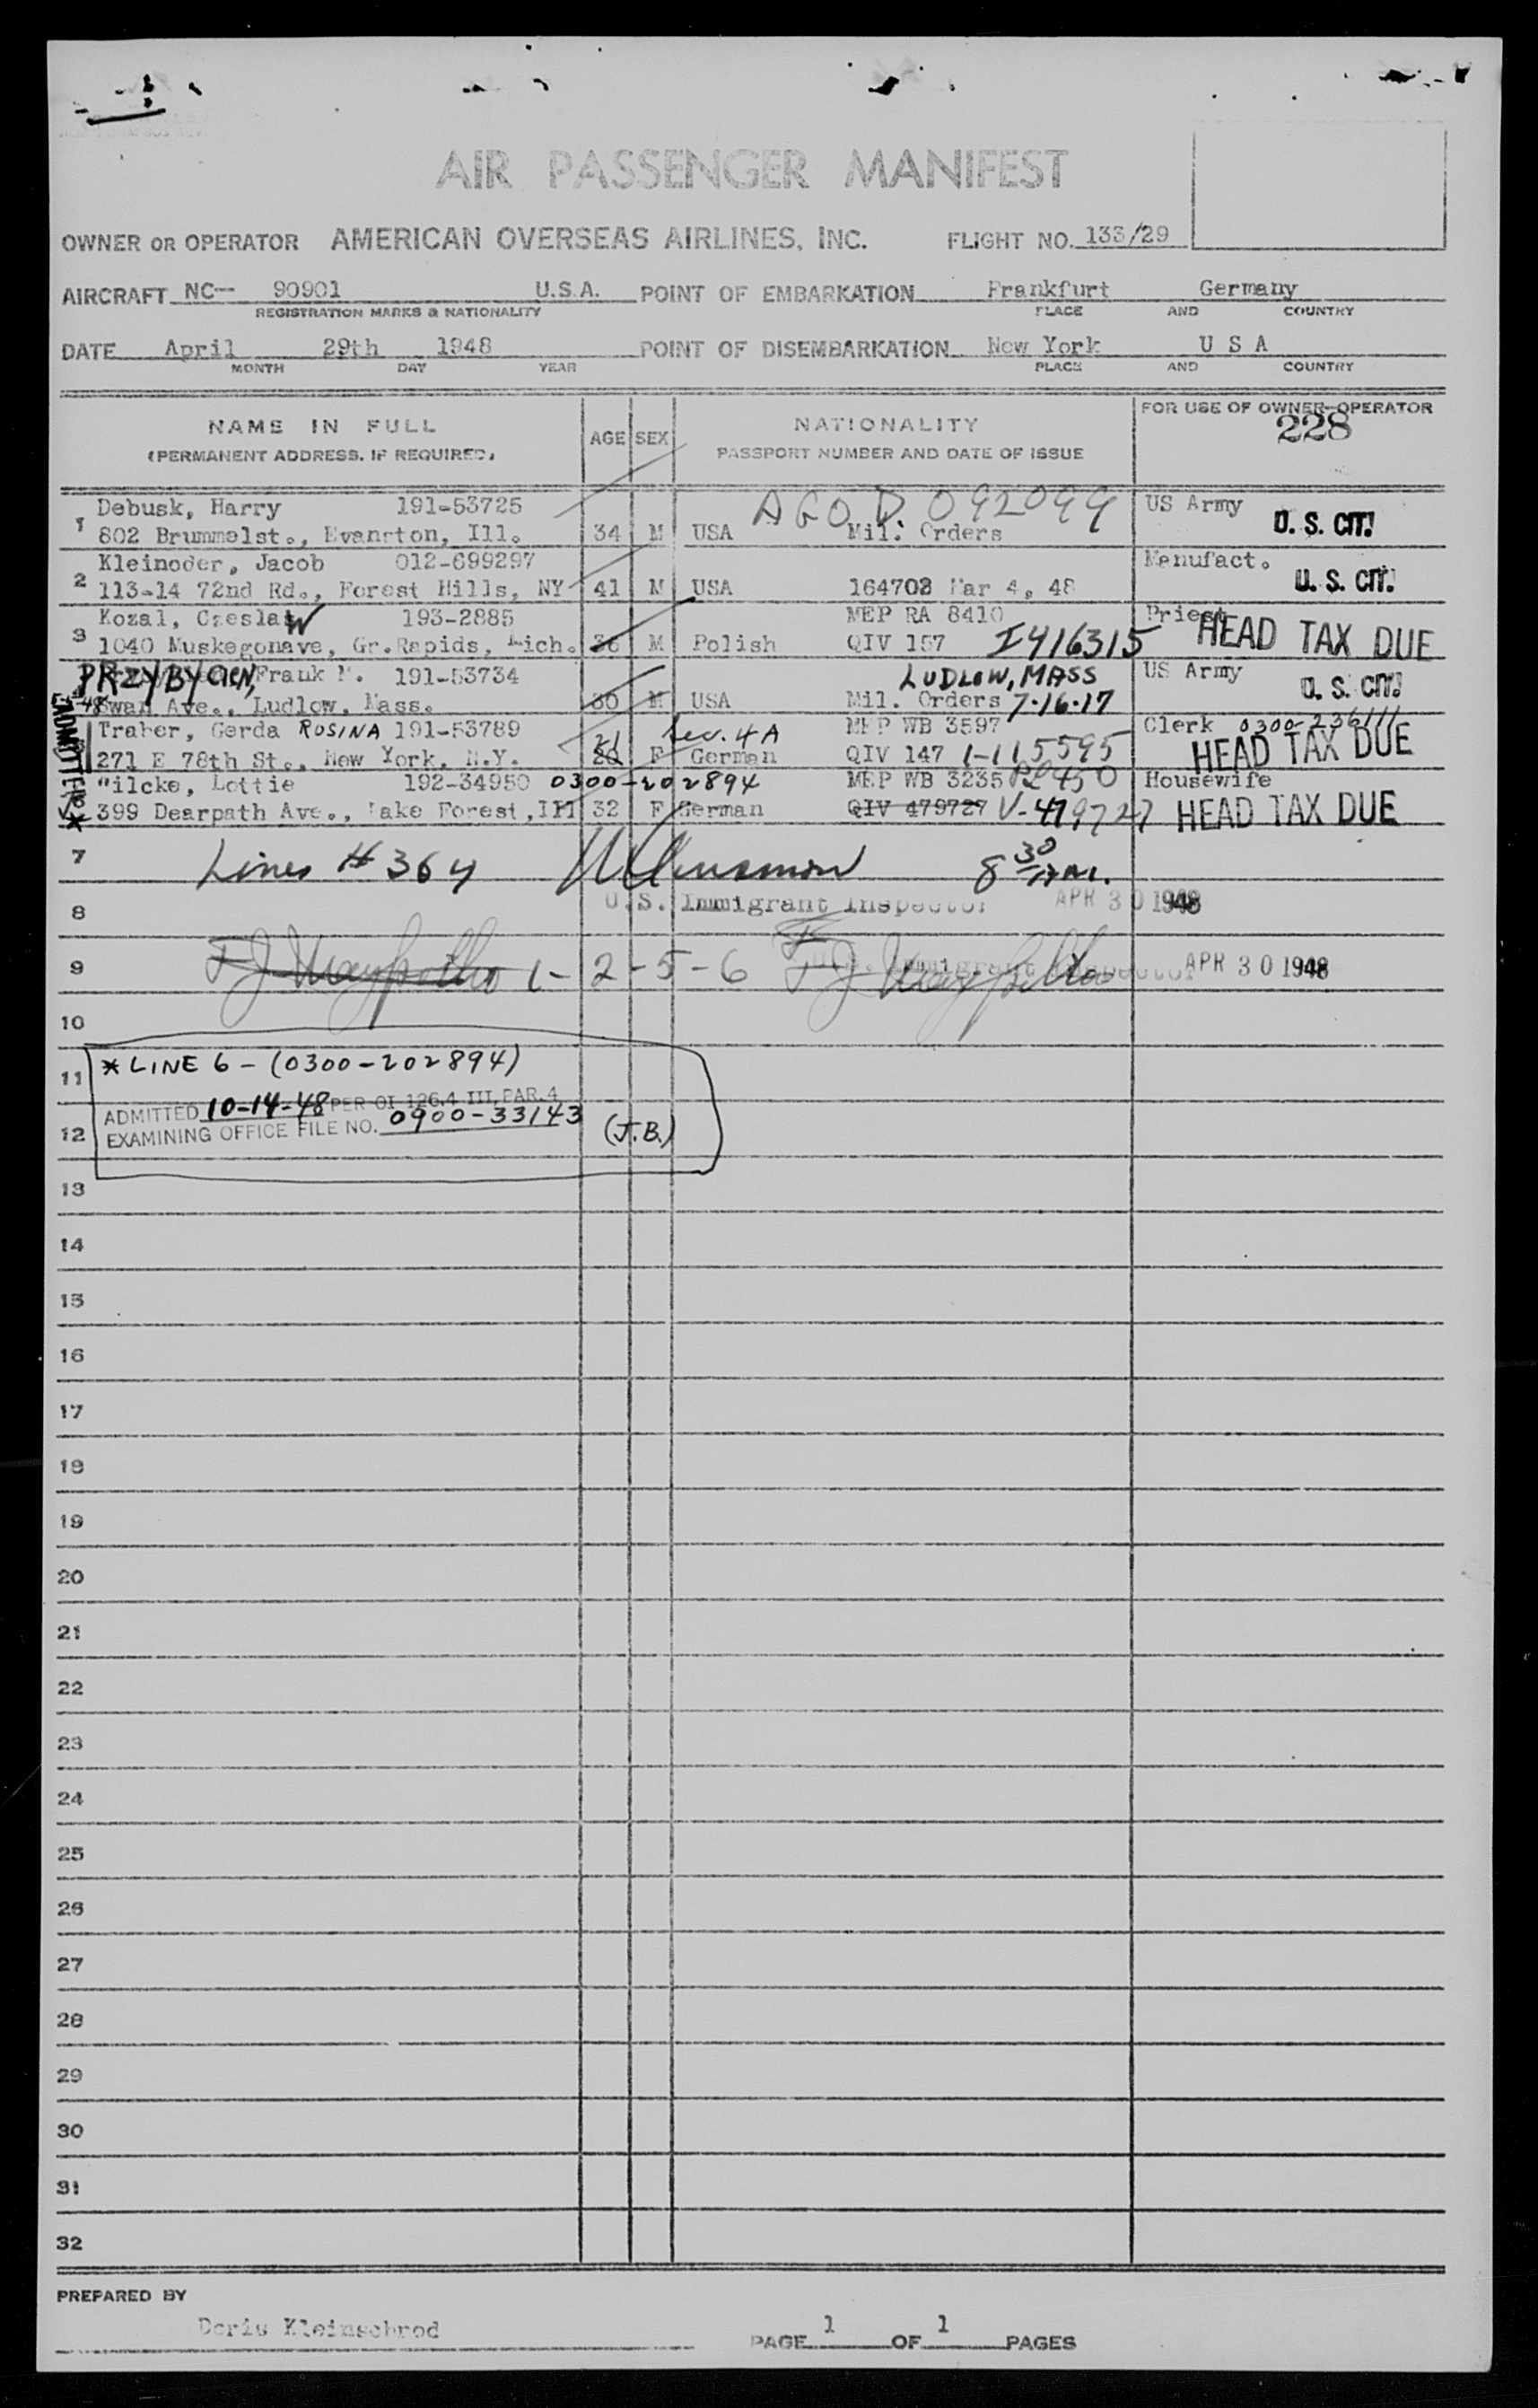 AIR PASSENGER MANIFEST
OWNER OR OPERATOR AMERICAN OVERSEAS AIRLINES, INC. FLIGHT NO. 133/29
AIRCRAFT NC— 90901 U.S.A. POINT OF EMBARKATION Frankfurt Germany
REGISTRATION MARKS & NATIONALITY PLACE AND COUNTRY
DATE April 29th 1948 POINT OF DISEMBARKATION New York U S A
MONTH DAY YEAR PLACE AND COUNTRY
NAME IN FULL AGE SEX NATIONALITY FOR USE OF OWNER-OPERATOR
(PERMANENT ADDRESS, IF REQUIRED) PASSPORT NUMBER AND DATE OF ISSUE 228
Debusk, Harry 191-53725 AGO D 092099 US Army
1 802 Brummelst., Evanston, Ill. 34 M USA Mil. Orders U. S. CIT.
Kleinoder, Jacob 012-699297 Manufact.
2 113-14 72nd Rd., Forest Hills, NY 41 M USA 164703 Mar 4, 48 U. S. CIT.
Kozal, Czeslaw 193-2885 MEP RA 8410 Priest
3 1040 Muskegonave, Gr.Rapids, Mich. 36 M Polish QIV 157 I416315 HEAD TAX DUE
PRZYBYCIEN, Frank M. 191-53734 LUDLOW, MASS US Army
48 Swan Ave., Ludlow, Mass. 30 M USA Mil. Orders 7-16-17 U. S. CIT.
Traber, Gerda ROSINA 191-53789 21 Sec. 4A MEP WB 3597 Clerk 0300-236111
271 E 78th St., New York, N.Y. 20 F German QIV 147 I-115595 HEAD TAX DUE
ADMITTED *
Wilcke, Lottie 192-34950 0300-202894 MEP WB 3235 PL450 Housewife
399 Dearpath Ave., Lake Forest, Ill 32 F German QIV 479727 V-479727 HEAD TAX DUE
7 Lines # 3 & 4 8 30 AM.
8 U.S. Immigrant Inspector APR 30 1948
9 1-2-5-6 U.S. Immigrant Inspector APR 30 1948
10
11 * LINE 6 - (0300-202894)
ADMITTED 10-14-48 PER OI 126.4 III, PAR. 4
12 EXAMINING OFFICE FILE NO. 0900-33143 (J.B.)
13
14
15
16
17
18
19
20
21
22
23
24
25
26
27
28
29
30
31
32
PREPARED BY
Doris Kleinschrod
PAGE 1 OF 1 PAGES